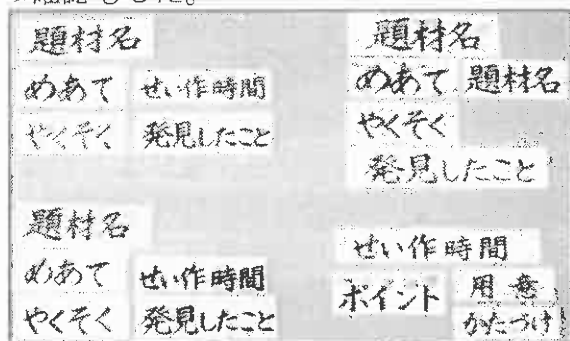 確認しました。
題材名
めあて せい作時間
やくそく 発見したこと
題材名
めあて 題材名
やくそく
発見したこと
題材名
めあて せい作時間
やくそく 発見したこと
せい作時間
ポイント 用意
かたづけ